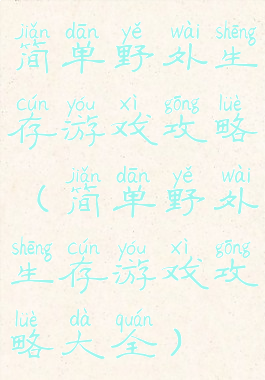 jiǎn dān yě wài shēng
简单野外生
cún yóu xì gōng lüè
存游戏攻略
jiǎn dān yě wài
（简单野外
shēng cún yóu xì gōng
生存游戏攻
lüè dà quán
略大全）